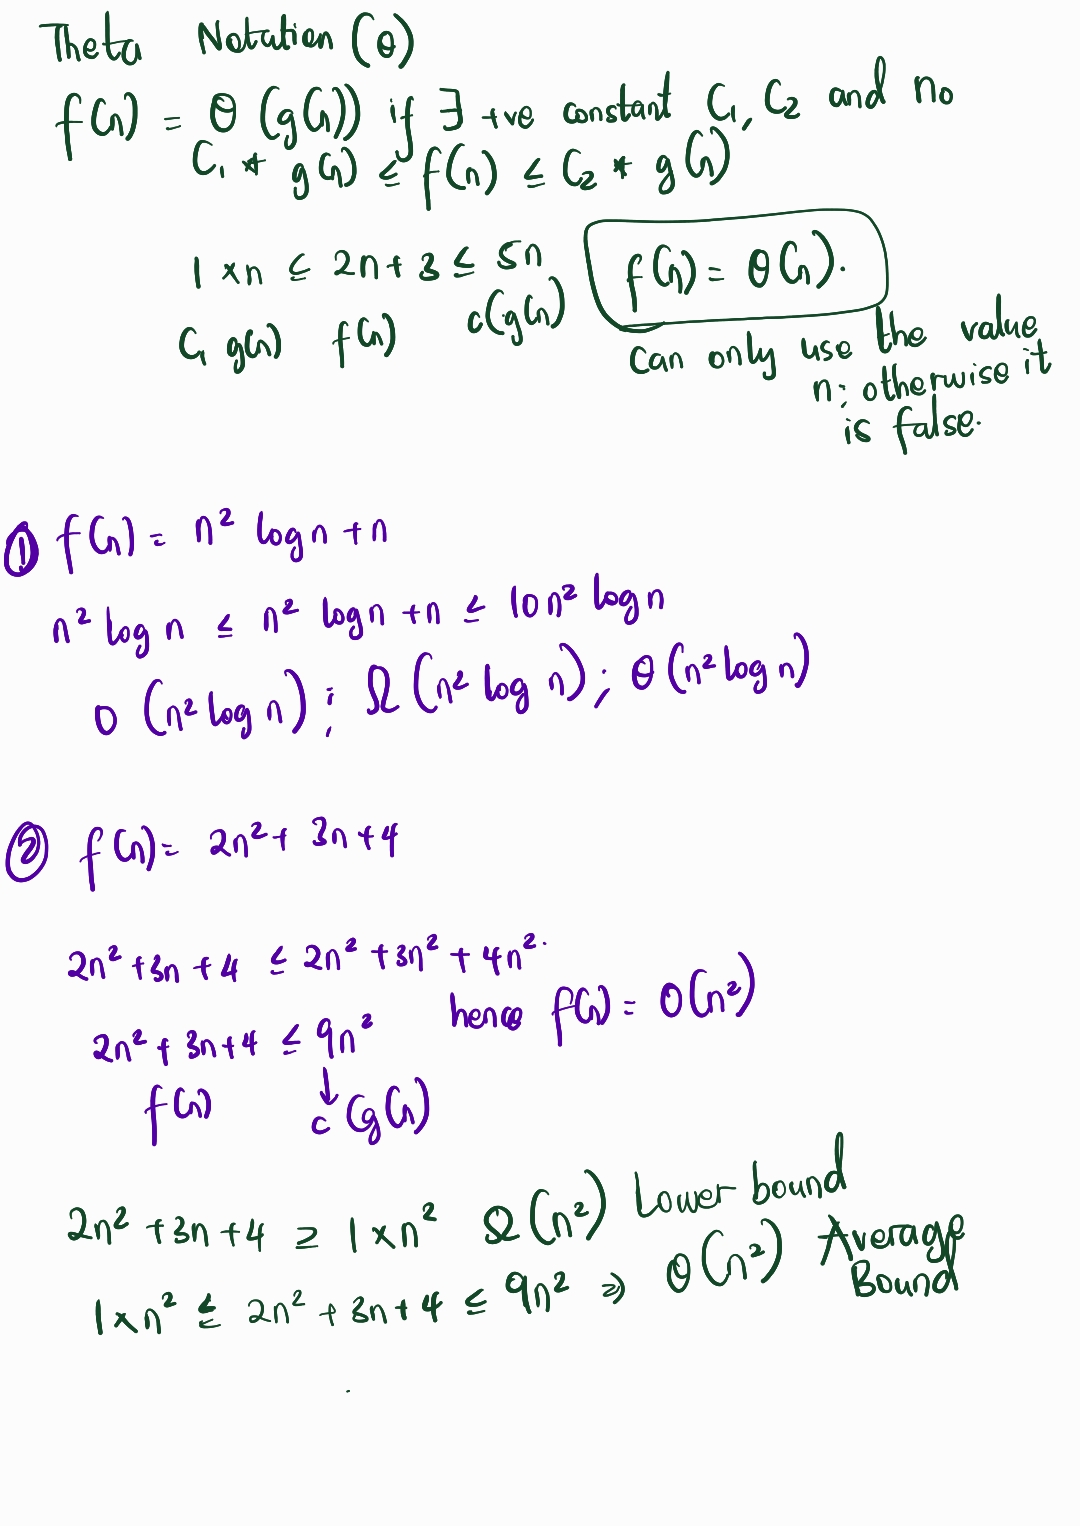 Theta Notation (θ)
f(n) = θ (g(n)) if ∃ +ve constant C₁, C₂ and no
C₁ * g(n) ≤ f(n) ≤ C₂ * g(n)
1 × n ≤ 2n + 3 ≤ 5n
f(n) = θ(n).
C₁ g(n) f(n) c(g(n))
can only use the value
n; otherwise it
is false.
① f(n) = n² log n + n
n² log n ≤ n² log n + n ≤ 10 n² log n
O (n² log n) ; Ω (n² log n) ; θ (n² log n)
② f(n) = 2n² + 3n + 4
2n² + 3n + 4 ≤ 2n² + 3n² + 4n².
2n² + 3n + 4 ≤ 9n² hence f(n) = O(n²)
f(n) ↓ c (g(n))
2n² + 3n + 4 ≥ 1 × n² Ω(n²) Lower bound
1 × n² ≤ 2n² + 3n + 4 ≤ 9n² ⇒ θ(n²) Average
Bound